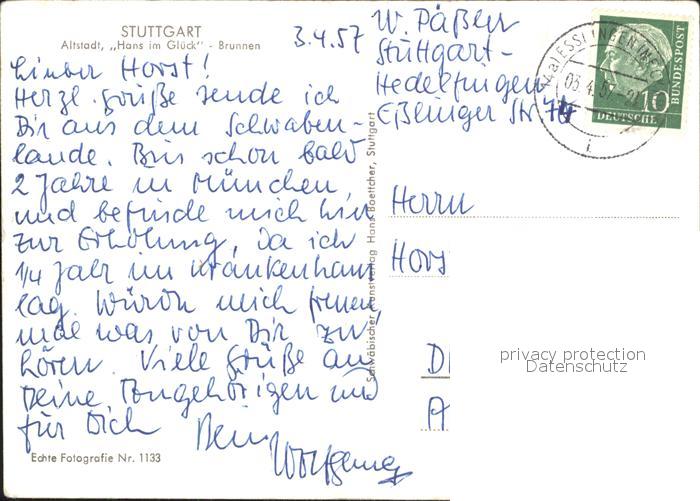 STUTTGART
Altstadt, „Hans im Glück" - Brunnen
3.4.57
Lieber Horst!
Herzl. Grüße sende ich
Dir aus dem Schwaben-
lande. Bin schon bald
2 Jahre in München
und befinde mich hier
zur Erholung, da ich
1/4 Jahr im Krankenhaus
lag. Würde mich freuen,
mal was von Dir zu
hören. Viele Grüße an
Deine Angehörigen und
für Dich Dein
Wolfgang
Echte Fotografie Nr. 1133
Schwäbischer Kunstverlag Hans Boettcher, Stuttgart
W. Päßler
Stuttgart-
Hedelfingen
Eßlinger Str.
ESSLINGEN
03.4.57-21
10
DEUTSCHE
BUNDESPOST
Herrn
Hors
D
A
privacy protection
Datenschutz